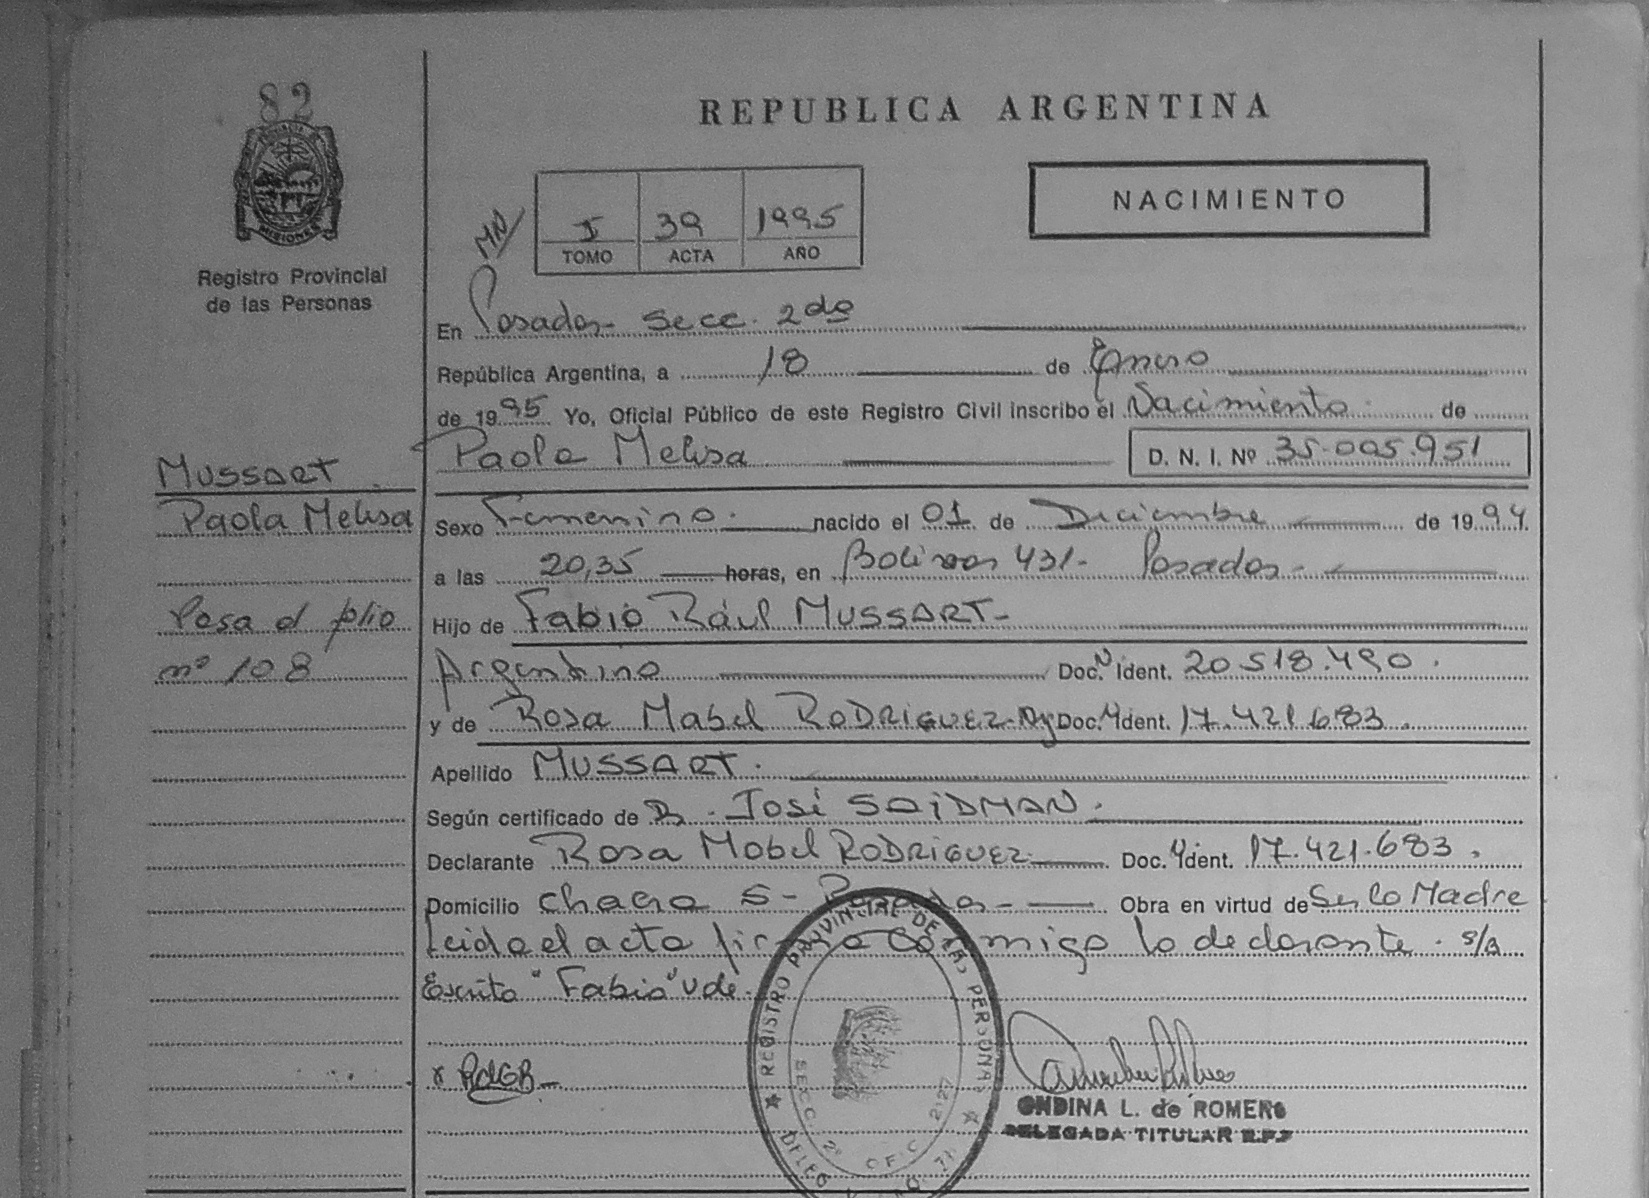 82
MISIONES
Registro Provincial
de las Personas
MUSSART
Paola Melisa
Pasa al folio
nº 108
REPUBLICA ARGENTINA
NACIMIENTO
I 39 1995
TOMO ACTA AÑO
En Posadas- Secc. 2da
República Argentina, a 18 de Enero
de 1995 Yo, Oficial Público de este Registro Civil inscribo el Nacimiento de
Paola Melisa D. N. I. Nº 35.005.951
Sexo Femenino. nacido el 01 de Diciembre de 1994
a las 20,35 horas, en Bolivar 431- Posadas-
Hijo de Fabio Rául MUSSART-
Argentino Doc. Ident. 20.518.490.
y de Rosa Mabel RODRIGUEZ- Doc. Ident. 17.421.683.
Apellido MUSSART.
Según certificado de José SAIDMAN.
Declarante Rosa Mabel RODRIGUEZ Doc. Ident. 17.421.683.
Domicilio Chacra 5- Posadas- Obra en virtud de Ser la Madre
Leida el acta firma conmigo la declarante. s/a
Escrito "Fabio" Vale.
REGISTRO PROVINCIAL DE LAS PERSONAS
SECC. 2º
ONDINA L. de ROMERO
DELEGADA TITULAR R.P.P